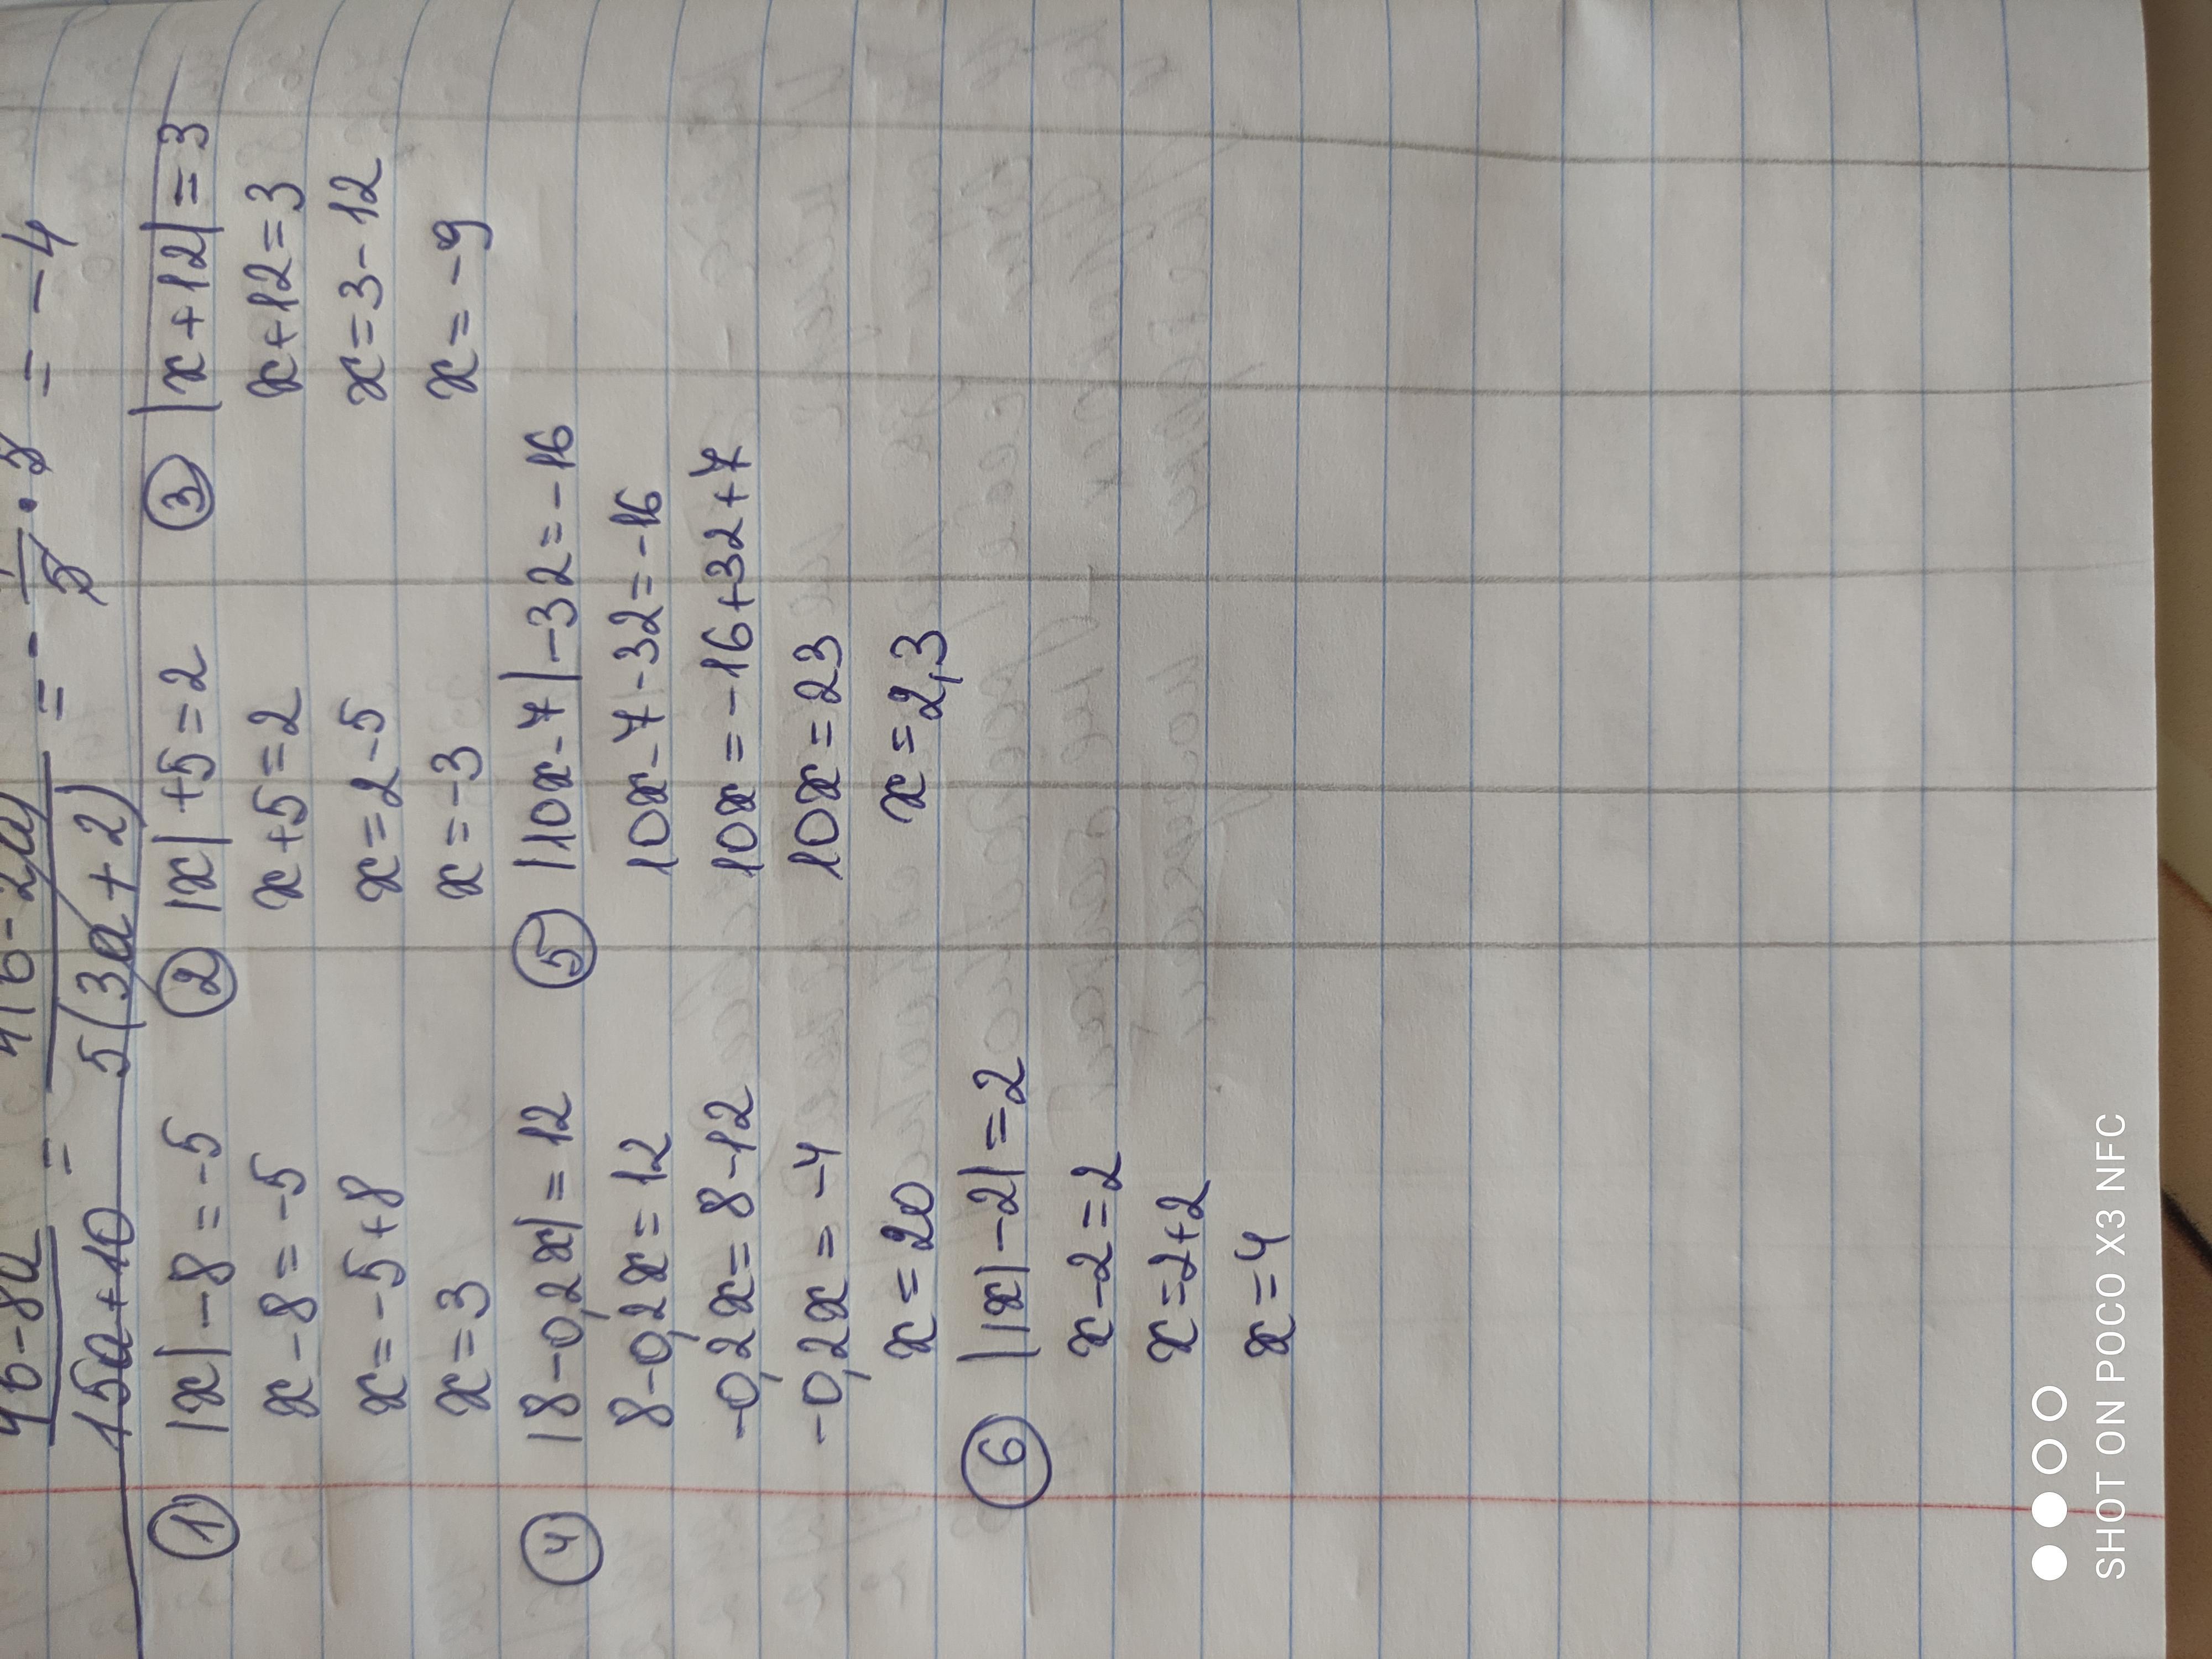 46-8a
15a+10
=
5(3a+2)
= -
5
= -4
① |x|-8=-5
x-8=-5
x=-5+8
x=3
② |x|+5=2
x+5=2
x=2-5
x=-3
③ |x+12|=3
x+12=3
x=3-12
x=-9
④ |8-0,2x|=12
8-0,2x=12
-0,2x=8-12
-0,2x=-4
x=20
⑤ |10x-7|-32=-16
10x-7-32=-16
10x=-16+32+7
10x=23
x=2,3
⑥ ||x|-2|=2
x-2=2
x=2+2
x=4
SHOT ON POCO X3 NFC